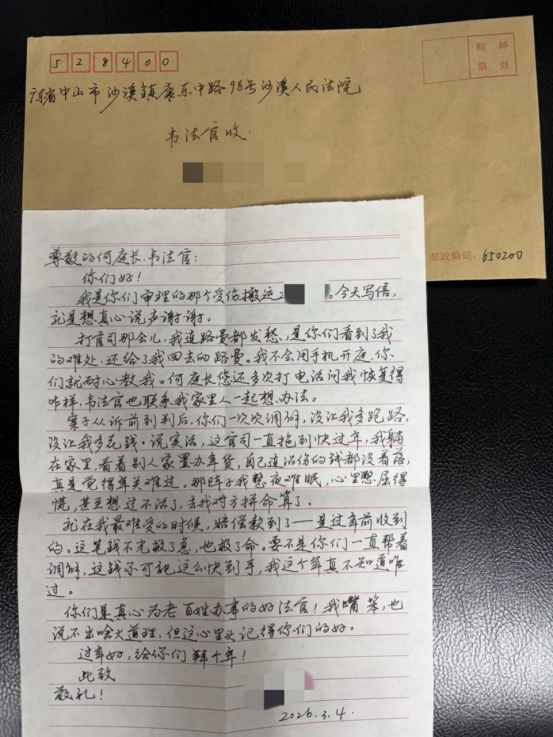 528400
贴 邮
票 处
广东省中山市沙溪鎮康乐中路98号沙溪人民法院
韦法官收
邮政编码：650200
尊敬的何庭长、韦法官：
你们好！
我是你们审理的那个受伤搬运。今天写信，
就是想真心说声谢谢。
打官司那会儿，我连路费都发愁，是你们看到了我
的难处，还给了我回去的路费。我不会用手机开庭，你
们就耐心教我。何庭长您还多次打电话问我恢复得
咋样，韦法官也联系我家里人一起想办法。
案子从诉前到判后，你们一次次调解，没让我多跑路，
没让我多花钱。说实话，这官司一直拖到快过年，我躺
在家里，看着别人家置办年货，自己连治伤的钱都没着落，
真是觉得年关难过。那阵子我整夜难眠，心里憋屈得
慌，甚至想过不活了，去找对方拼命算了。
就在我最难受的时候，赔偿款到了——是过年前收到
的。这笔钱不光救了急，也救了命。要不是你们一直帮着
调解，这钱不可能这么快到手，我这个年真不知道咋
过。
你们是真心为老百姓办事的好法官！我嘴笨，也
说不出啥大道理，但这心里头记得你们的好。
过年好，给你们拜个年！
此致
敬礼！
2026.3.4.